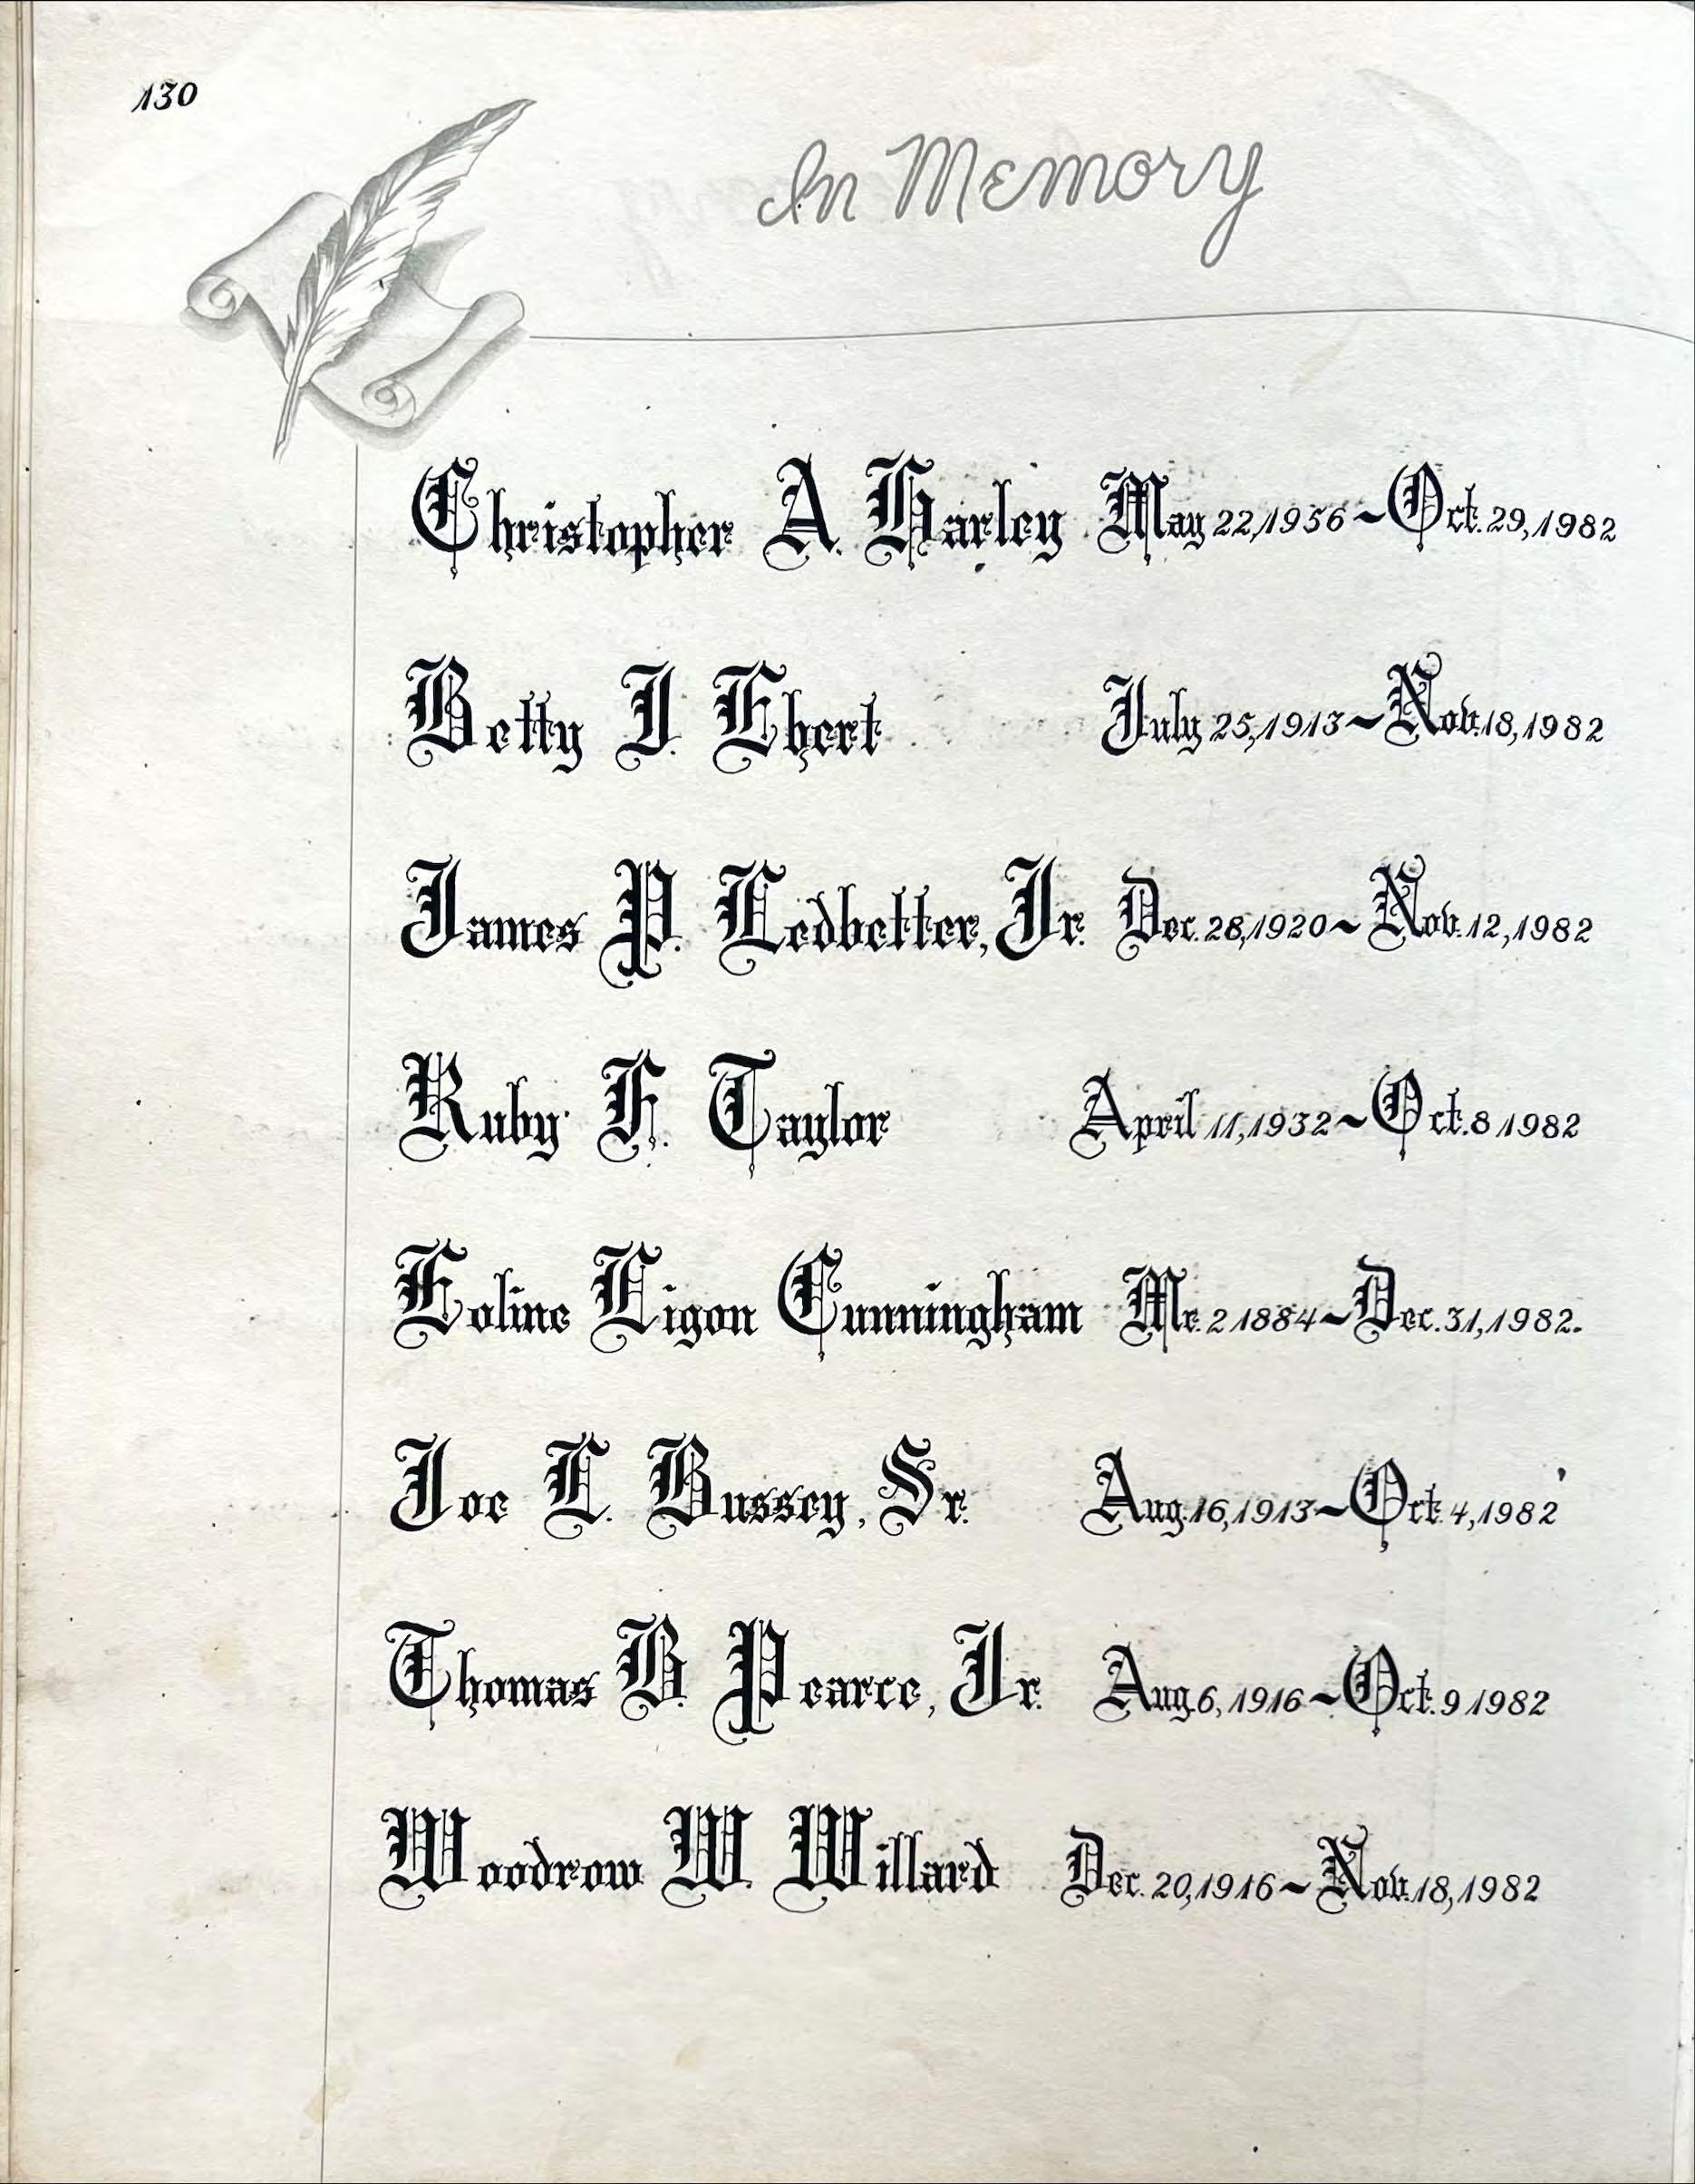 130
In Memory
Christopher A. Harley May 22, 1956 ~ Oct. 29, 1982
Betty J. Ebert July 25, 1913 ~ Nov. 18, 1982
James P. Ledbetter, Jr. Dec. 28, 1920 ~ Nov. 12, 1982
Ruby F. Taylor April 11, 1932 ~ Oct. 8 1982
Eoline Ligon Cunningham Mr. 2 1884 ~ Dec. 31, 1982.
Joe L. Bussey, Sr. Aug. 16, 1913 ~ Oct. 4, 1982
Thomas B. Pearce, Jr. Aug. 6, 1916 ~ Oct. 9 1982
Woodrow W. Willard Dec. 20, 1916 ~ Nov. 18, 1982